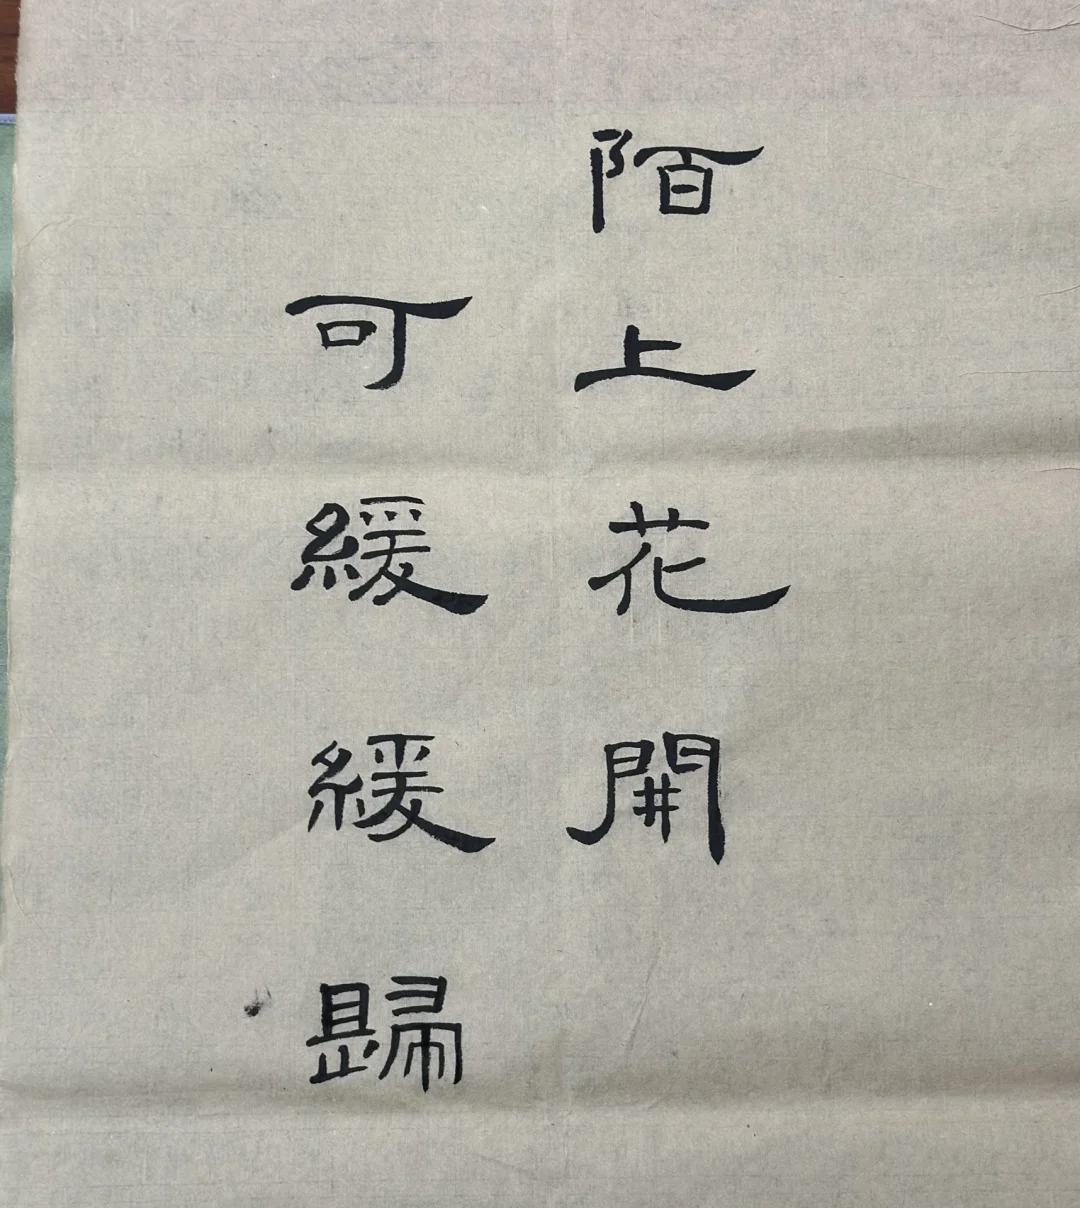 陌上花開
可緩緩歸